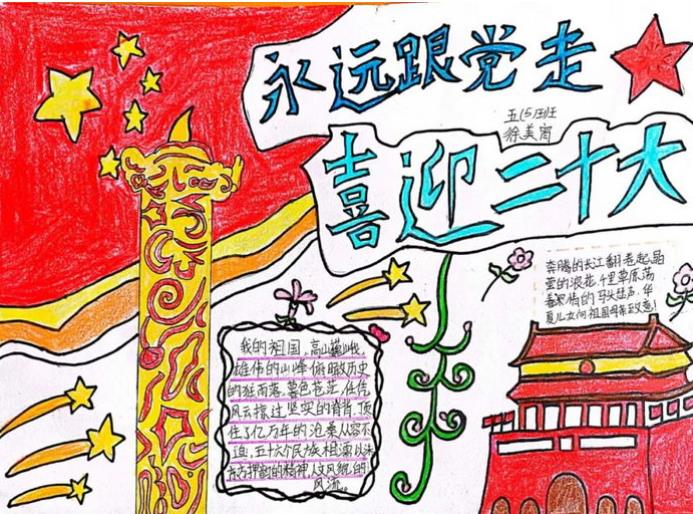 永远跟党走
五(5)班
徐美宵
喜迎二十大
奔腾的长江翻卷起晶
莹的浪花,千里草原荡
着思情的马头琴声,华
夏儿女向祖国母亲致意!
我的祖国,高山巍峨,
雄伟的山峰俯瞰历史
的狂雨落,暮色苍茫,任凭
风云掠过,坚实的脊背,顶
住了亿万年的沧桑从容不
迫,五十六个民族相濡以沫
东方押韵的精神,人文风貌的
风流。